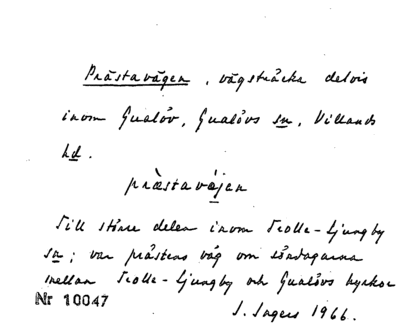 Prästavägen, vägsträcka delvis
inom Gualöv, Gualövs sn, Villands
hd.
præ̀stavǻjen
Till större delen inom Trolle-Ljungby
sn; var prästens väg om söndagarna
mellan Trolle-Ljungby och Gualövs kyrkor
Nr 10047
I. Ingers 1966.